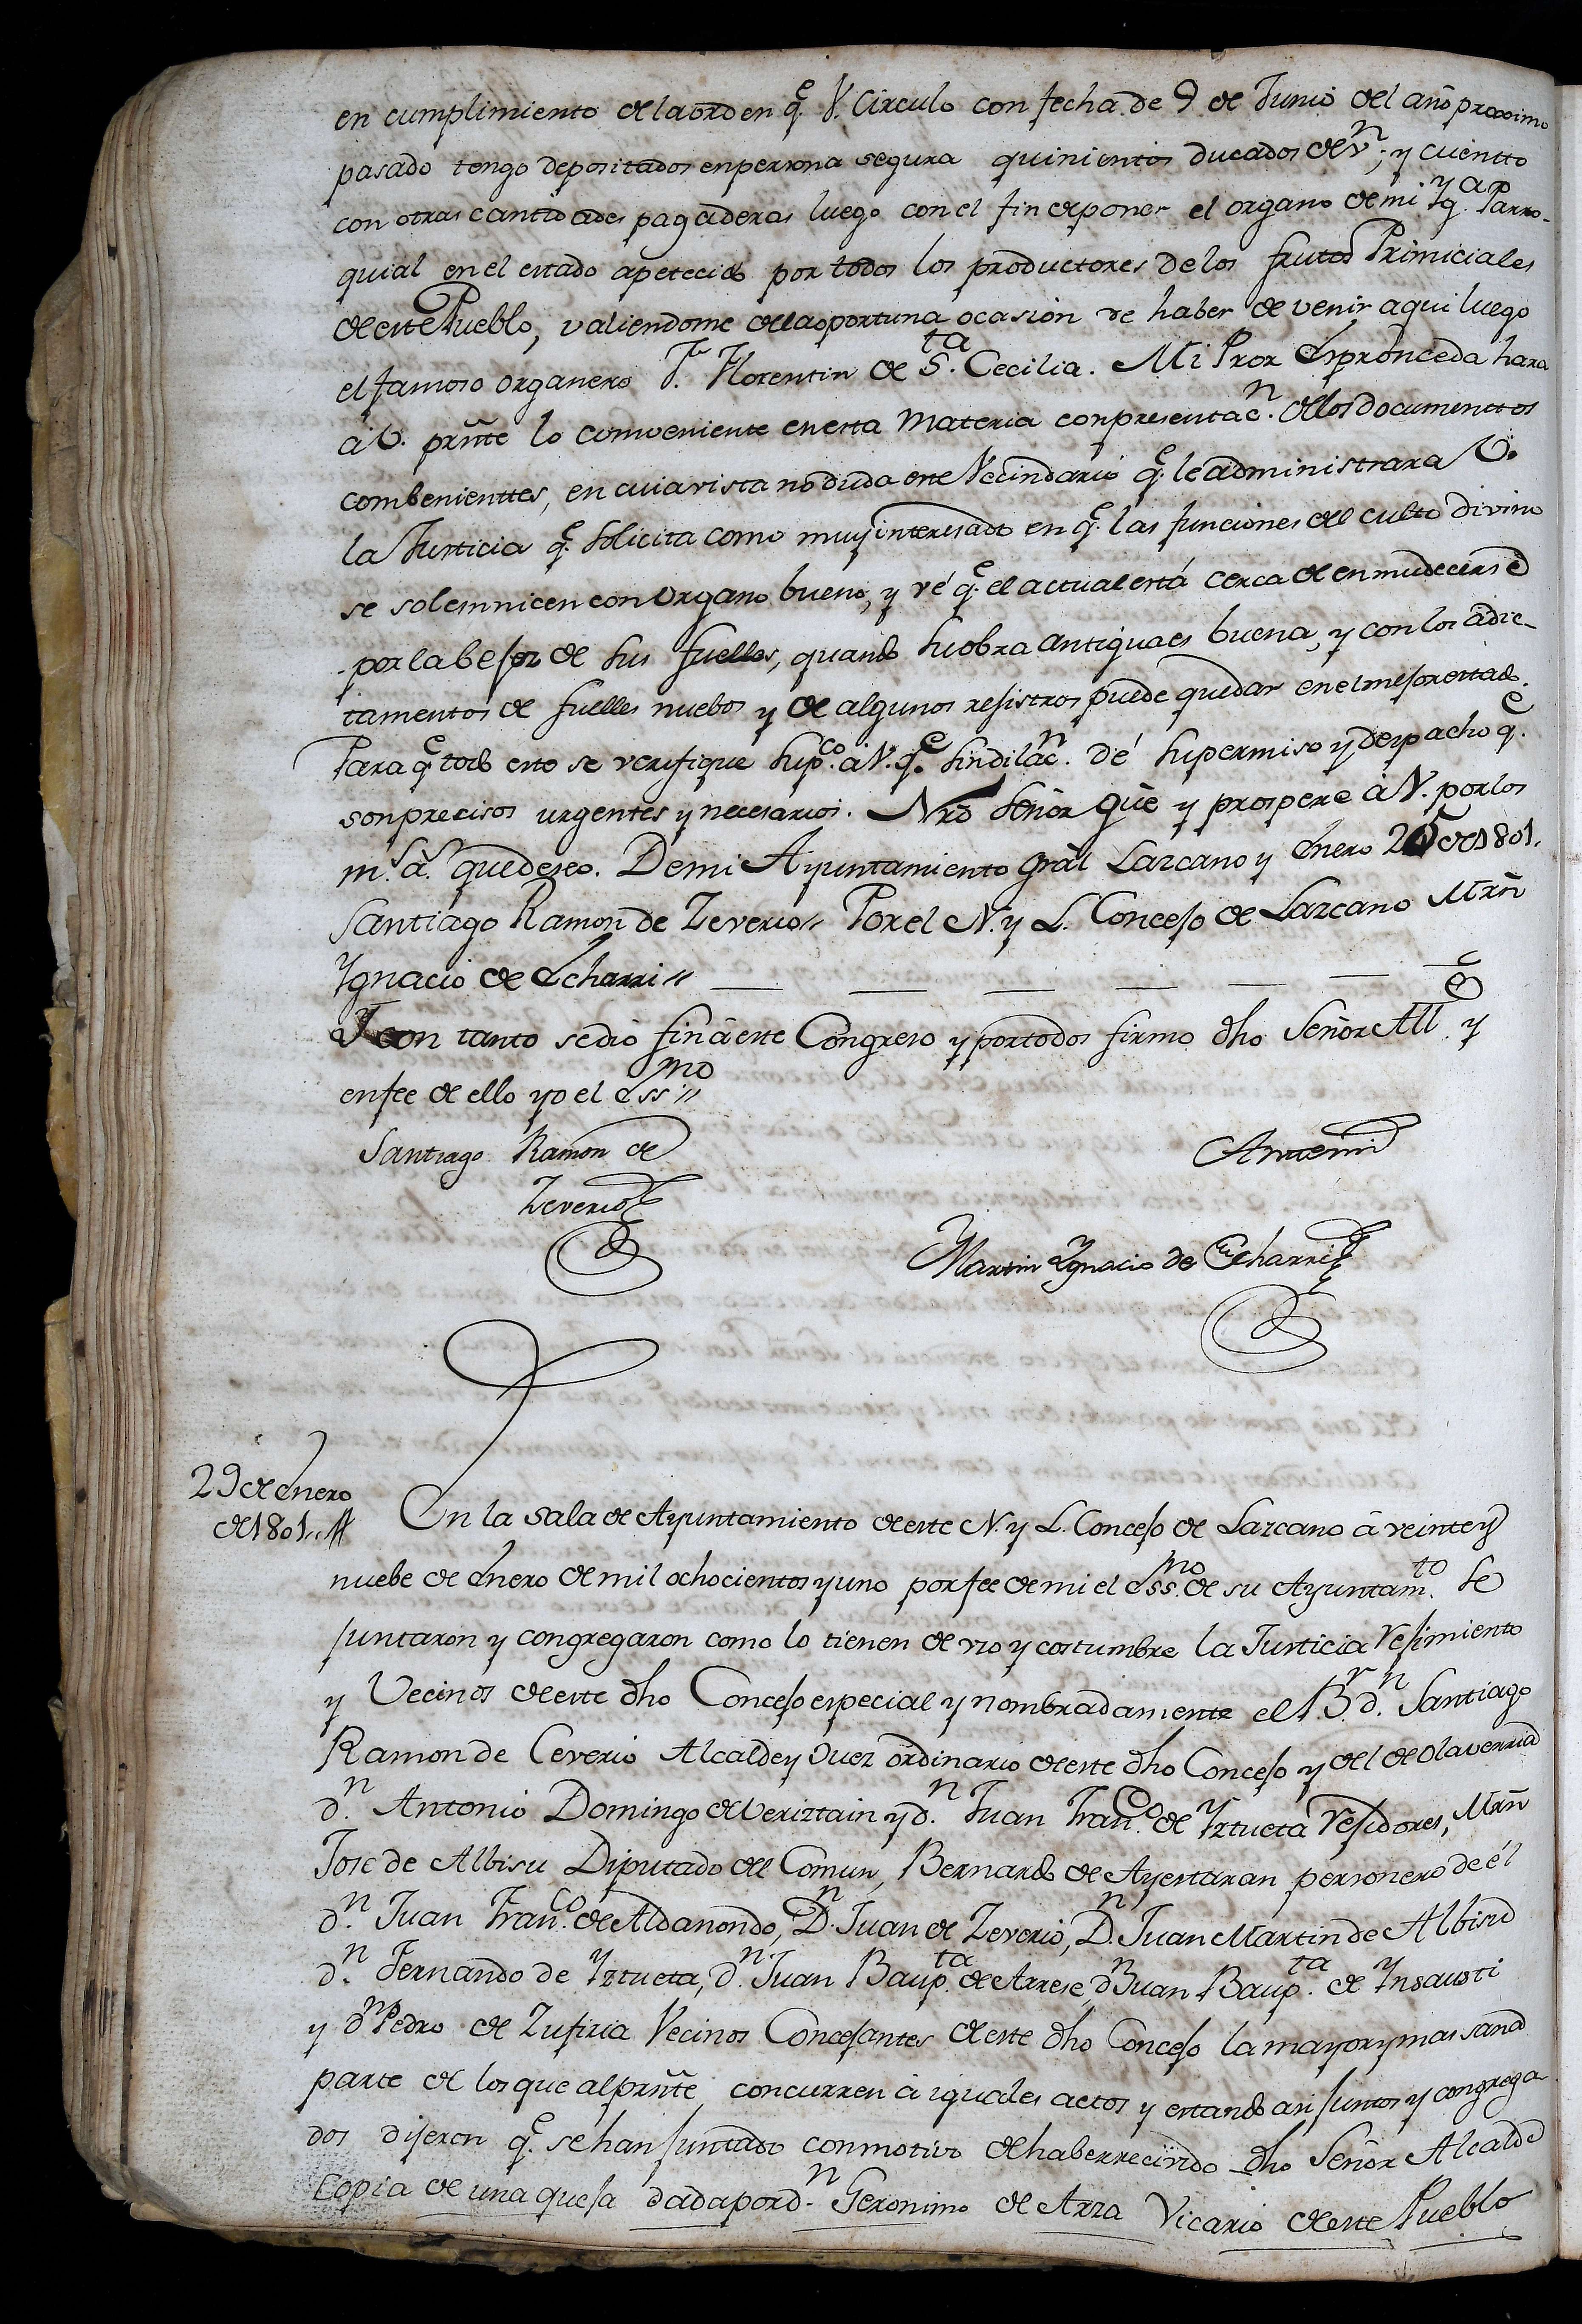 en cumplimiento de la orden q.e V. Circulo con fecha de 9 de Junio del año proximo
pasado tengo depositados en persona segura quinientos ducados de v.n; y cuentto
con otras cantidades pagaderas luego con el fin de poner el organo de mi Yg.ª Parro-
quial en el estado apetecido por todos los productores de los frutos Primiciales
de este Pueblo, valiendome de la oportuna ocasion de haber de venir aqui luego
el famoso organero Fr. Florentin de S.ta Cecilia. Mi Pror Espronceda hara
à V. prñte lo conveniente en esta Materia con presentac.n de los documenttos
combenienttes, en cuia vista no duda este Vecindario q.e le administrara V.
la Justicia q.e solicita como muy interesado en q.e las funciones del culto divino
se solemnicen con organo bueno, y vé q.e el actual está cerca de enmudecerse
por la bejez de sus fuelles, quando su obra antigua es buena, y con los adic-
tamentos de fuelles nuebos y de algunos rejistros puede quedar en el mejor estado.
Para q.e todo esto se verifique sup.co à V. q.e sin dilac.n dé su permiso y despacho q.e
son precisos urgentes y necesarios. Nrõ Señor güe y prospere à V. por los
m.s a.s que deseo. De mi Ayuntamiento grãl Lazcano y Enero 25 de 1801.
Santiago Ramon de Zeverio // Por el N. y L. Concejo de Lazcano Mrñ
Ygnacio de Echarri //
Y con tanto se dió fin à este Congreso y por todos firmo dho Señor All.e y
en fee de ello yo el Ess.mo //
Santiago Ramon de
Zeverio
Antemi
Martin Ygnacio de Echarri
29 de Enero
de 1801 //
En la Sala de Ayuntamiento de este N. y L. Concejo de Lazcano à veinte y
nuebe de Enero de mil ochocientos y uno por fee de mi el Ess.mo de su Ayuntam.to se
juntaron y congregaron como lo tienen de vso y costumbre la Justicia Rejimiento
y Vecinos de este dho Concejo especial y nombradamente el B.r d.n Santiago
Ramon de Ceverio Alcalde y Juez ordinario de este dho Concejo y del de Olaverria
d.n Antonio Domingo de Veriztain y d.n Juan Fran.co de Yztueta Rejidores, Mrñ
Jose de Albisu Diputado del Comun, Bernardo de Ayestaran personero de él
d.n Juan Fran.co de Aldanondo, D.n Juan de Zeverio, D.n Juan Martin de Albisu
d.n Fernando de Yztueta, d.n Juan Baup.ta de Arrese, d.n Juan Baup.ta de Ynsausti
y d.n Pedro de Zufiria Vecinos Concejantes de este dho Concejo la mayor y mas sana
parte de los que al prñte concurren à iguales actos y estando asi juntos y congrega-
dos dijeron q.e se han juntado con motivo de haber recivido dho Señor Alcalde
Copia de una queja dada por d.n Geronimo de Arza Vicario de este Pueblo